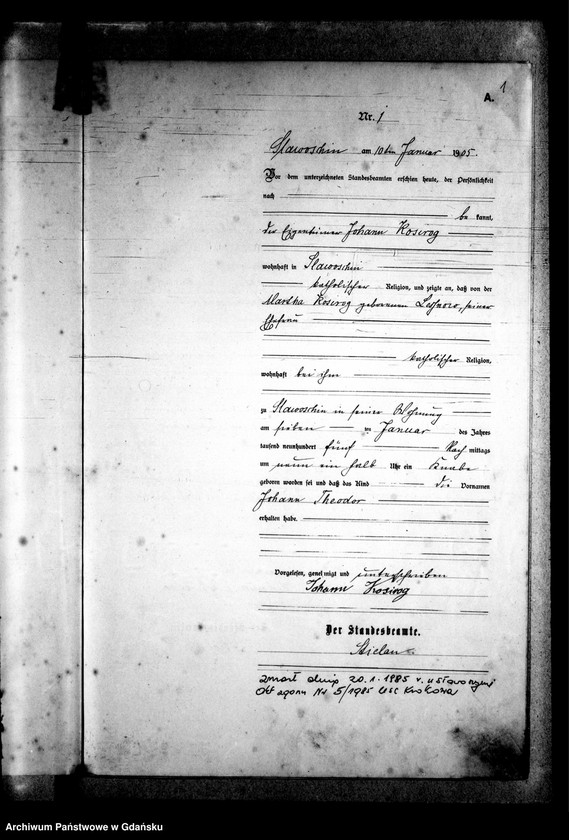 1
A.
Nr. 1
Slawoschin am 10ten Januar 1905.
Vor dem unterzeichneten Standesbeamten erschien heute, der Persönlichkeit
nach
be kannt,
der Eigentümer Johann Kosirog
wohnhaft in Slawoschin
katholischer Religion, und zeigte an, daß von der
Martha Kosirog geborenen seiner
Ehefrau
katholischer Religion,
wohnhaft bei ihm
zu Slawoschin in seiner Wohnung
am sieben ten Januar des Jahres
tausend neunhundert fünf Nach mittags
um neun ein halb Uhr ein Knabe
geboren worden sei und daß das Kind die Vornamen
Johann Theodor
erhalten habe.
Vorgelesen, genehmigt und unterschrieben
Johann Kosirog
Der Standesbeamte.
zmarł dnia 20.1.1985 r. w
Akt zgonu Nr 5/1985 USC Krokowa
Archiwum Państwowe w Gdańsku